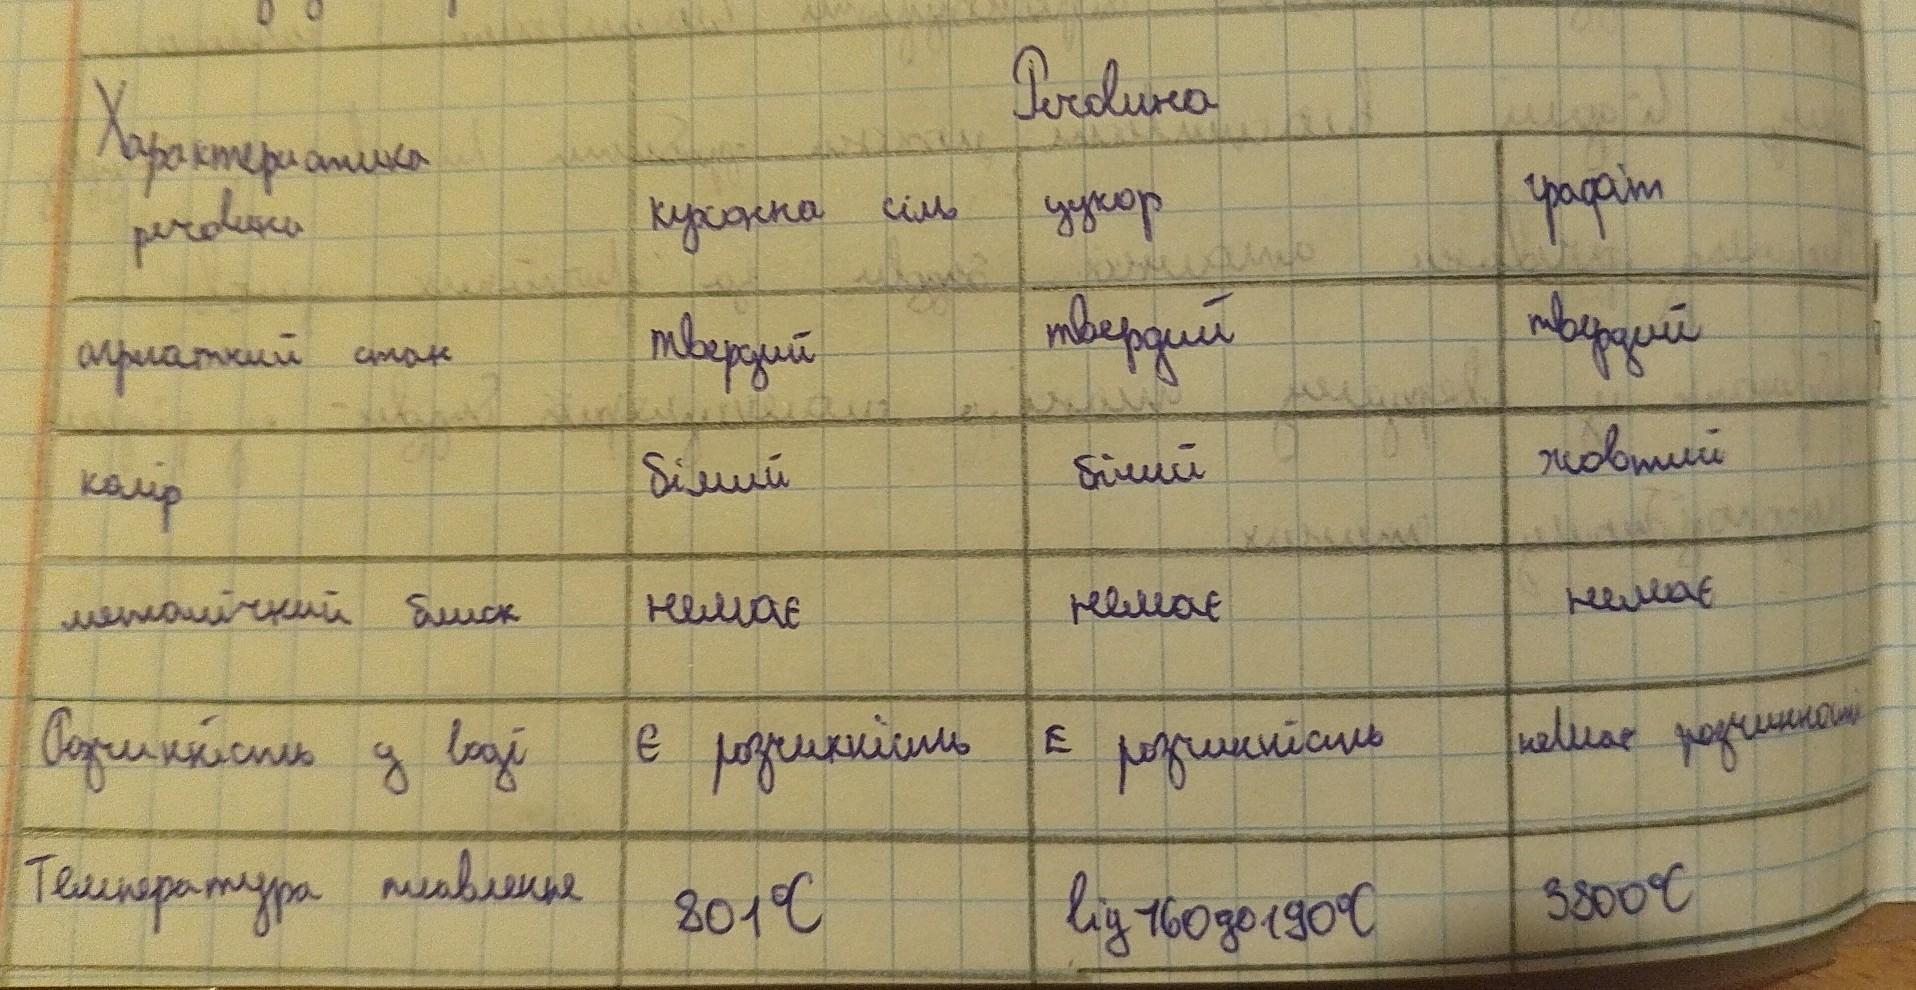 Речовина
Характеристика
речовини
кухонна сіль цукор графіт
агрегатний стан твердий твердий твердий
колір білий білий жовтий
металічний блиск немає немає немає
Розчинність у воді Є розчинність Є розчинність немає розчинності
Температура плавлення 801°C від 160 до 190°C 3800°C